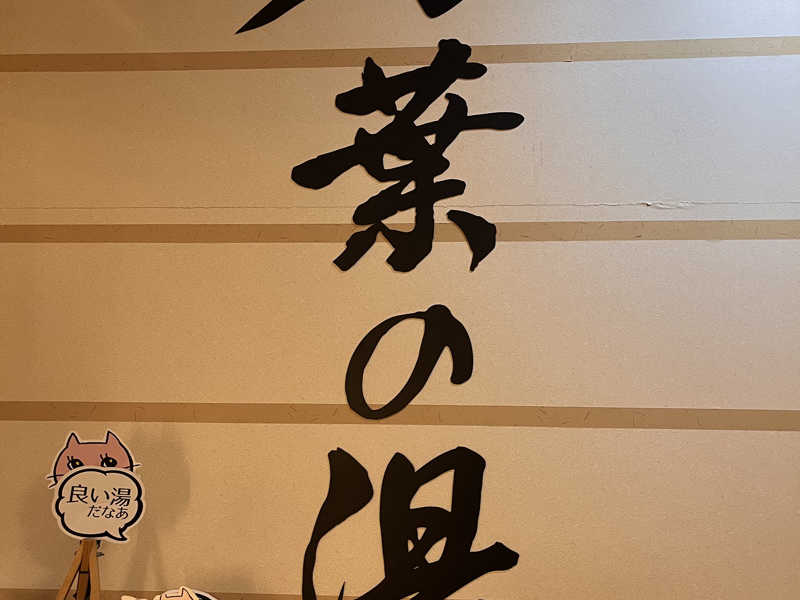 葉の湯
良い湯
だなぁ